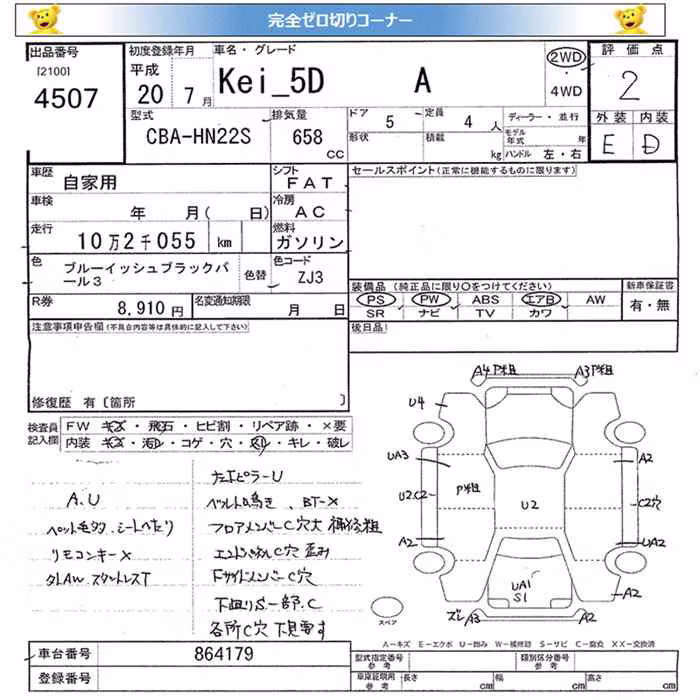 完全ゼロ切りコーナー
出品番号 初度登録年月 車名・グレード 評価点
[2100] 平成 2WD
4507 20 7月 Kei_5D A 4WD 2
型式 排気量 ドア 5 定員 4 人 ディーラー・並行 外装 内装
CBA-HN22S 658 CC 形状 積載 kg モデル年式 年 E D
ハンドル 左・右
車歴 自家用 シフト FAT セールスポイント(正常に機能するものに限ります)
車検 年 月( 日) 冷房 AC
走行 10万2千055 km 燃料 ガソリン
色 ブルーイッシュブラックパール3 色替 色コード ZJ3
装備品(純正品に限り○をつけてください) 新車保証書
PS PW ABS エアB AW 有・無
SR ナビ TV カワ
R券 8,910円 名変通知期限 月 日
注意事項申告欄(不具合内容等は具体的に記入して下さい) 後日品
修復歴 有〔箇所 〕
検査員記入欄 FW キズ・飛石・ヒビ割・リペア跡・×要
内装 キズ・汚レ・コゲ・穴・スレ・キレ・破レ
A.U
ペット毛多 シートへたり
リモコンキー×
スタットレスT
左エピラーU
ベルト鳴き、BT-×
フロアメンバーC穴大 補修粗
C穴 歪み
下サイドメンバーC穴
下廻りS一部.C
各所C穴 下見要す
A4 P粗 A3 P粗
U4
UA3 A2
P粗
U2.C2 U2 C2穴
A2 UA2
UA1
S1
ズレ A3 A2 A2
スペア
A−キズ E−エクボ U−凹み W−補修跡 S−サビ C−腐食 XX−交換済
車台番号 864179 型式指定番号 参考 類別区分番号 参考
登録番号 車庫証明用 参考 長さ cm 幅 cm 高さ cm